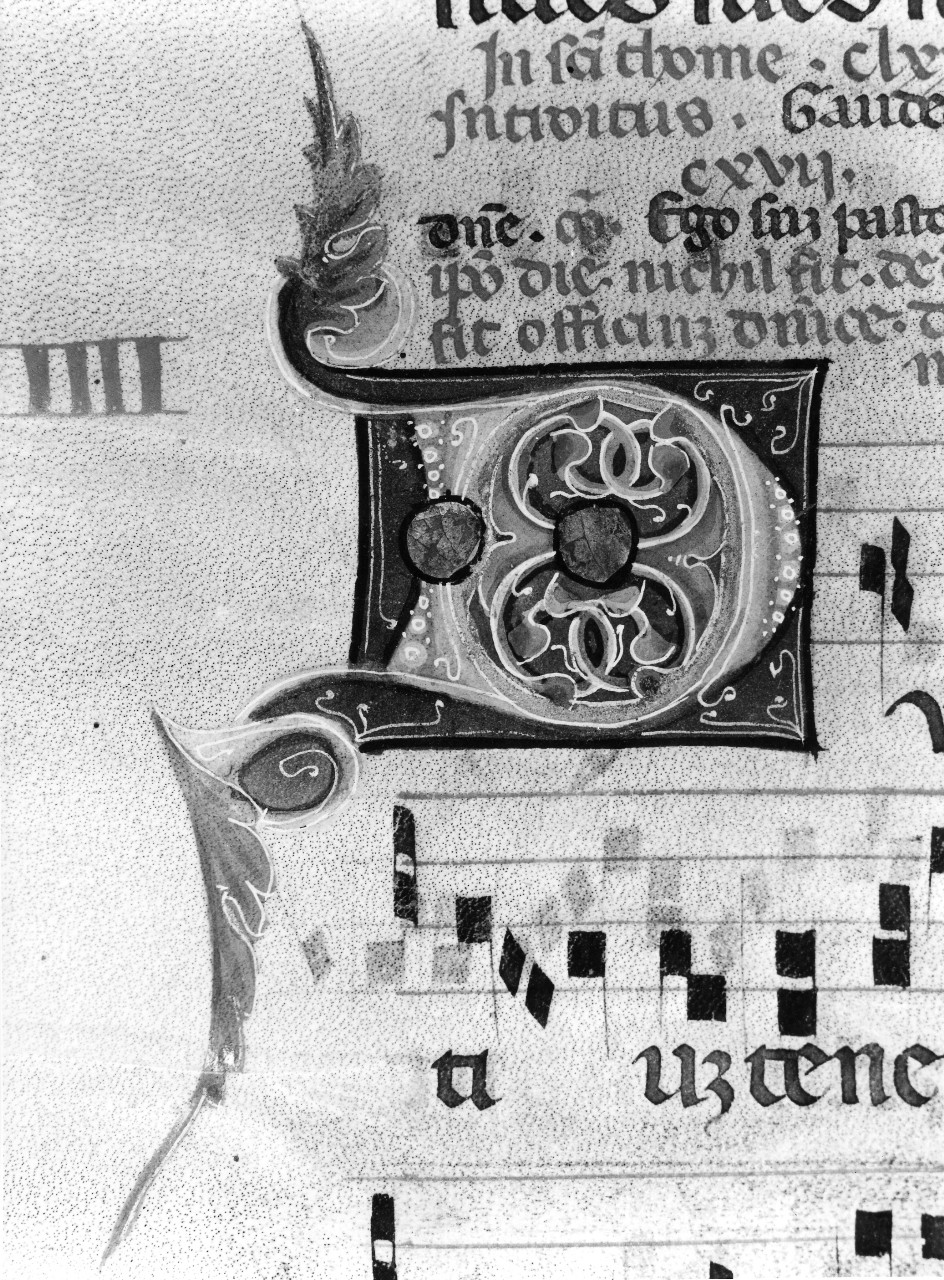 In scā thome . clx
Introitus . Gaude
cxvij.
dne. Ego suz pasto
ipō die. nichil fit. de
fit officiuz dnice.
IIII
ti uz tene